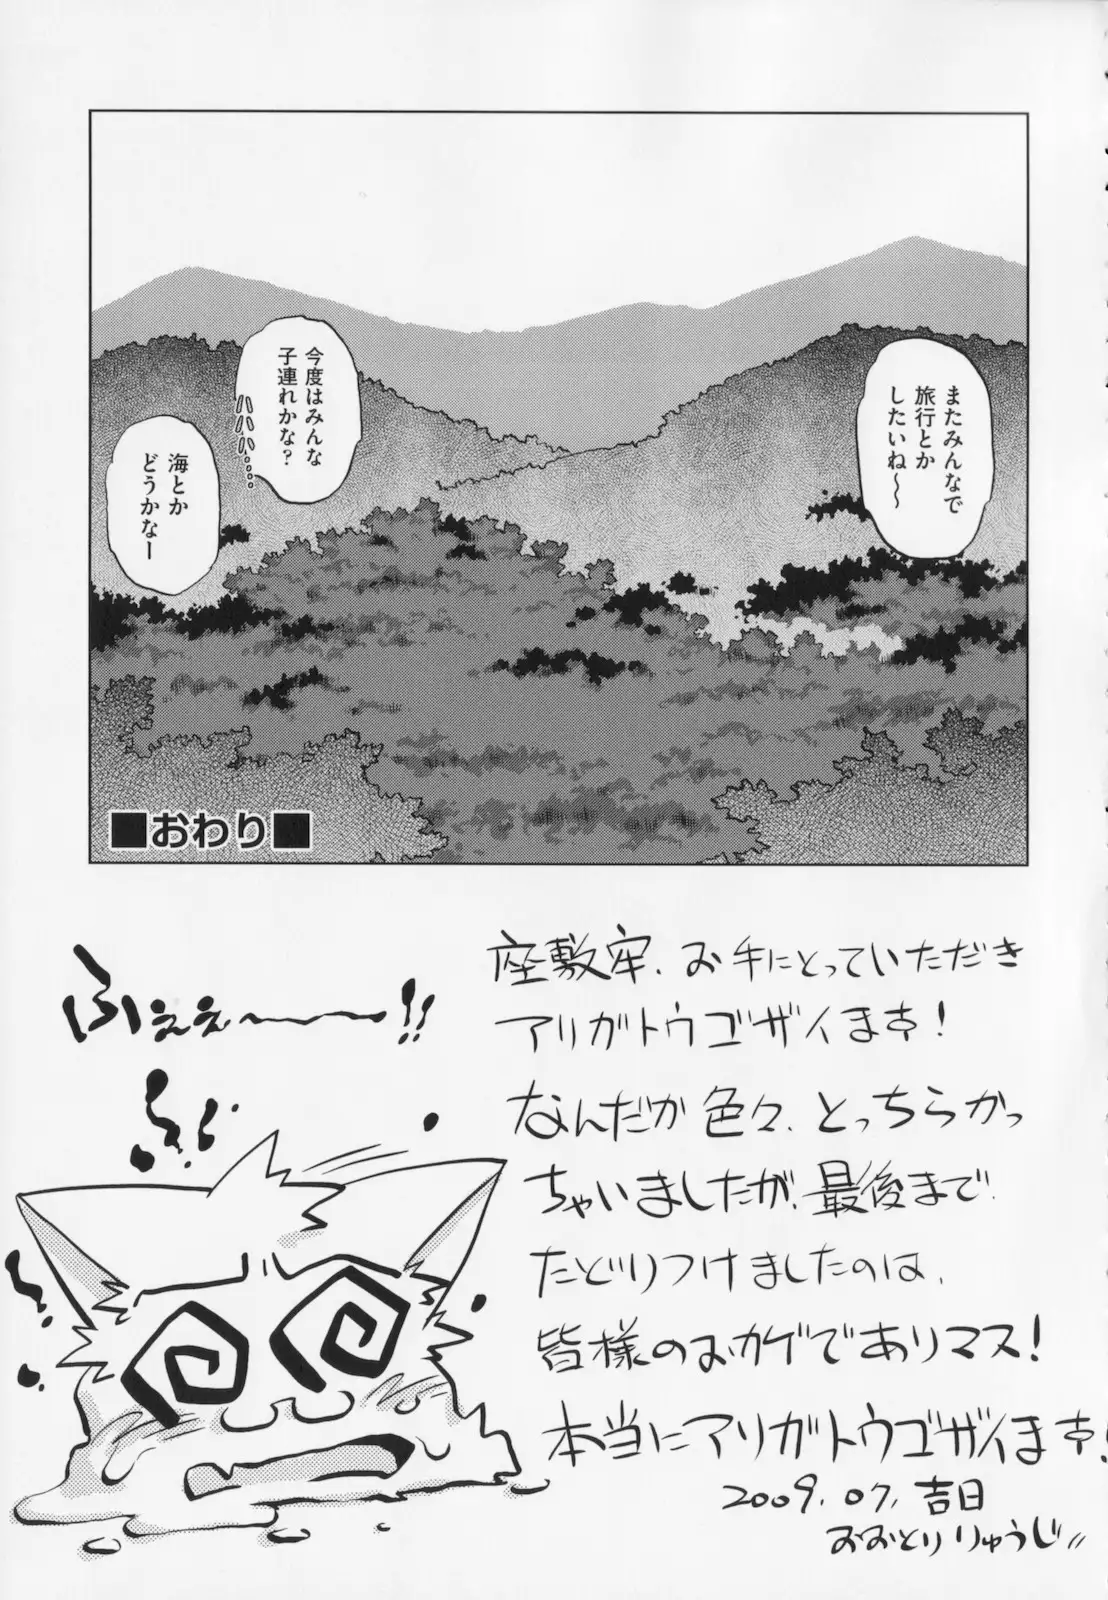 またみんなで
旅行とか
したいね～
今度はみんな
子連れかな？
ハハハ…
海とか
どうかなー
■おわり■
ふぇぇ～!!
座敷牢、お手にとっていただき
アリガトウゴザイます！
なんだか色々、とっちらかっ
ちゃいましたが、最後まで
たどりつけましたのは、
皆様のおカゲでありマス！
本当にアリガトウゴザイます！
2009.07.吉日
おおとりりゅうじ